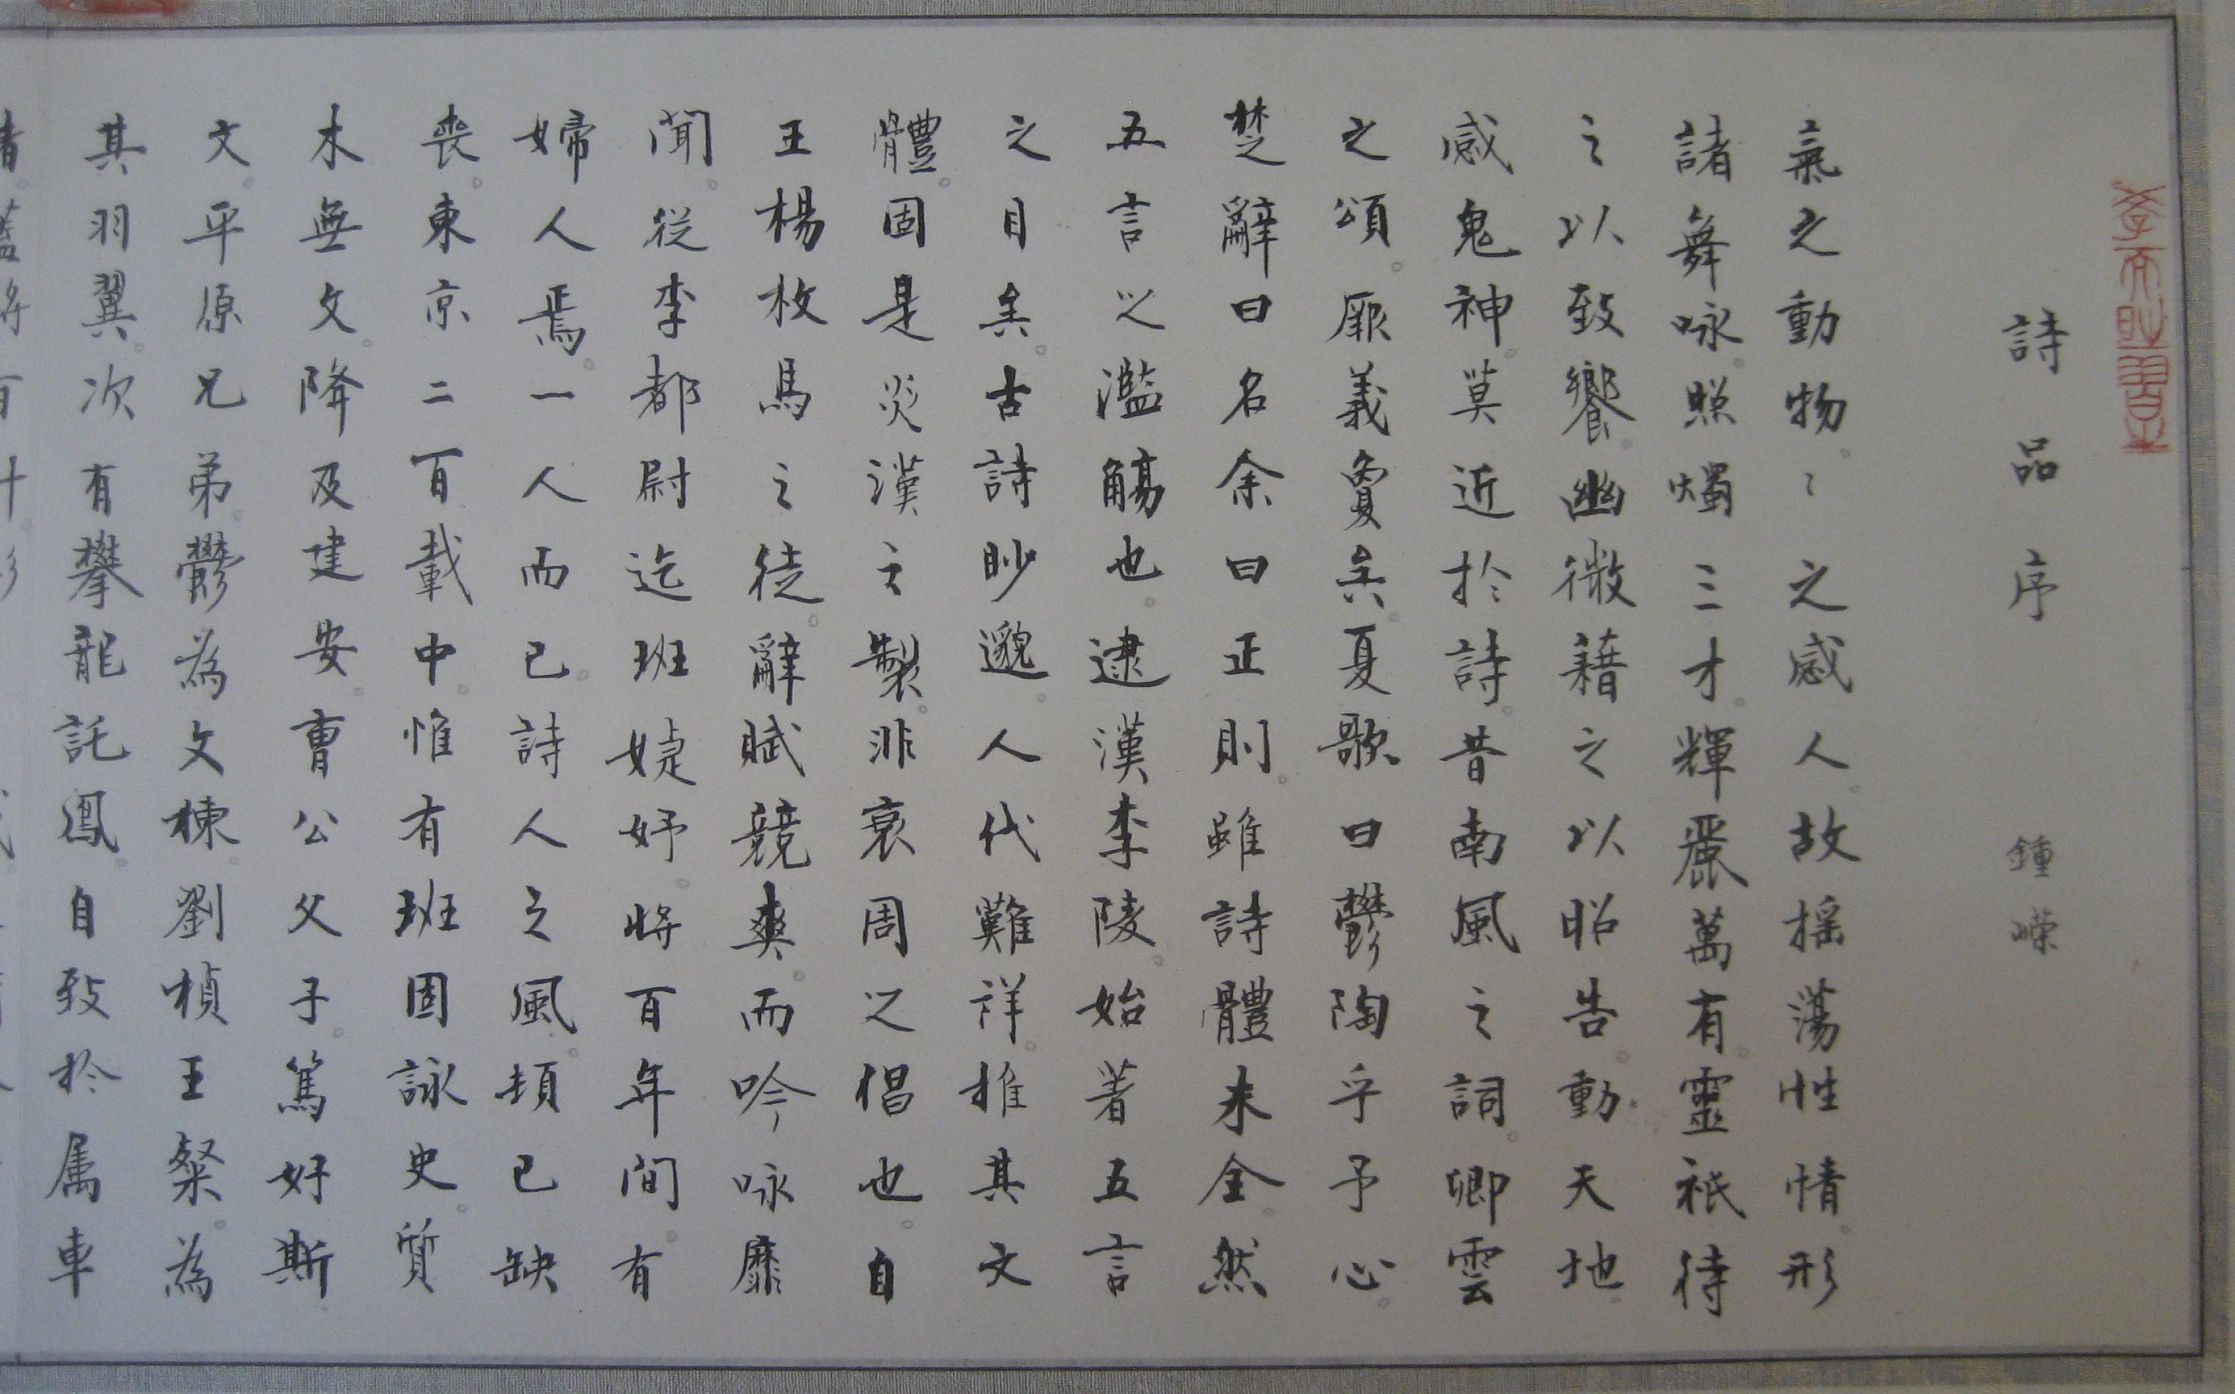 詩品序 鍾嶸
氣之動物。〻之感人。故搖蕩性情。形
諸舞咏。照燭三才。輝麗萬有。靈祇待
之以致饗。幽微藉之以昭告。動天地。
感鬼神。莫近於詩。昔南風之詞。卿雲
之頌。厥義敻矣。夏歌曰鬱陶乎予心。
楚辭曰名余曰正則。雖詩體未全。然
五言之濫觴也。逮漢李陵。始著五言
之目矣。古詩眇邈。人代難詳。推其文
體。固是炎漢之製。非衰周之倡也。自
王楊枚馬之徒。辭賦競爽。而吟咏靡
聞。從李都尉迄班婕妤。將百年間。有
婦人焉。一人而已。詩人之風。頓已缺
喪。東京二百載中。惟有班固詠史。質
木無文。降及建安。曹公父子。篤好斯
文。平原兄弟。鬱為文棟。劉楨王粲。為
其羽翼。次有攀龍託鳳。自致於属車